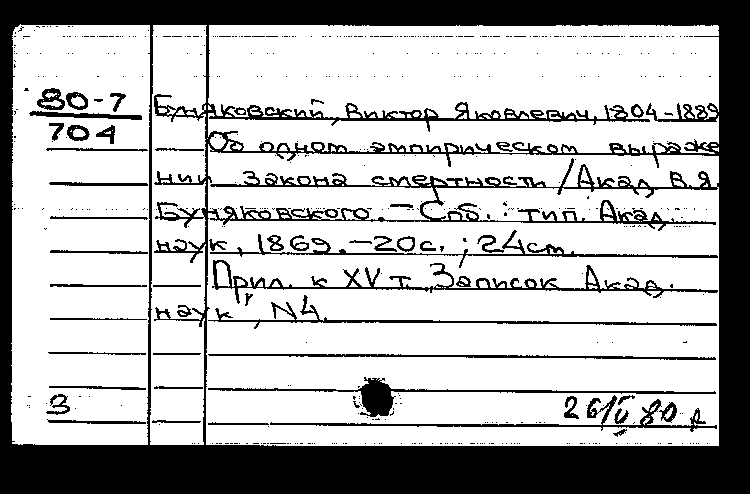 80-7
704
Буняковский, Виктор Яковлевич, 1804-1889
Об одном эмпирическом выраже
нии закона смертности / Акад. В.Я.
Буняковского. - Спб. : тип. Акад.
наук, 1869. - 20с. ; 24 см.
Прил. к XV т. "Записок Акад.
наук", N4.
3
26/V 80